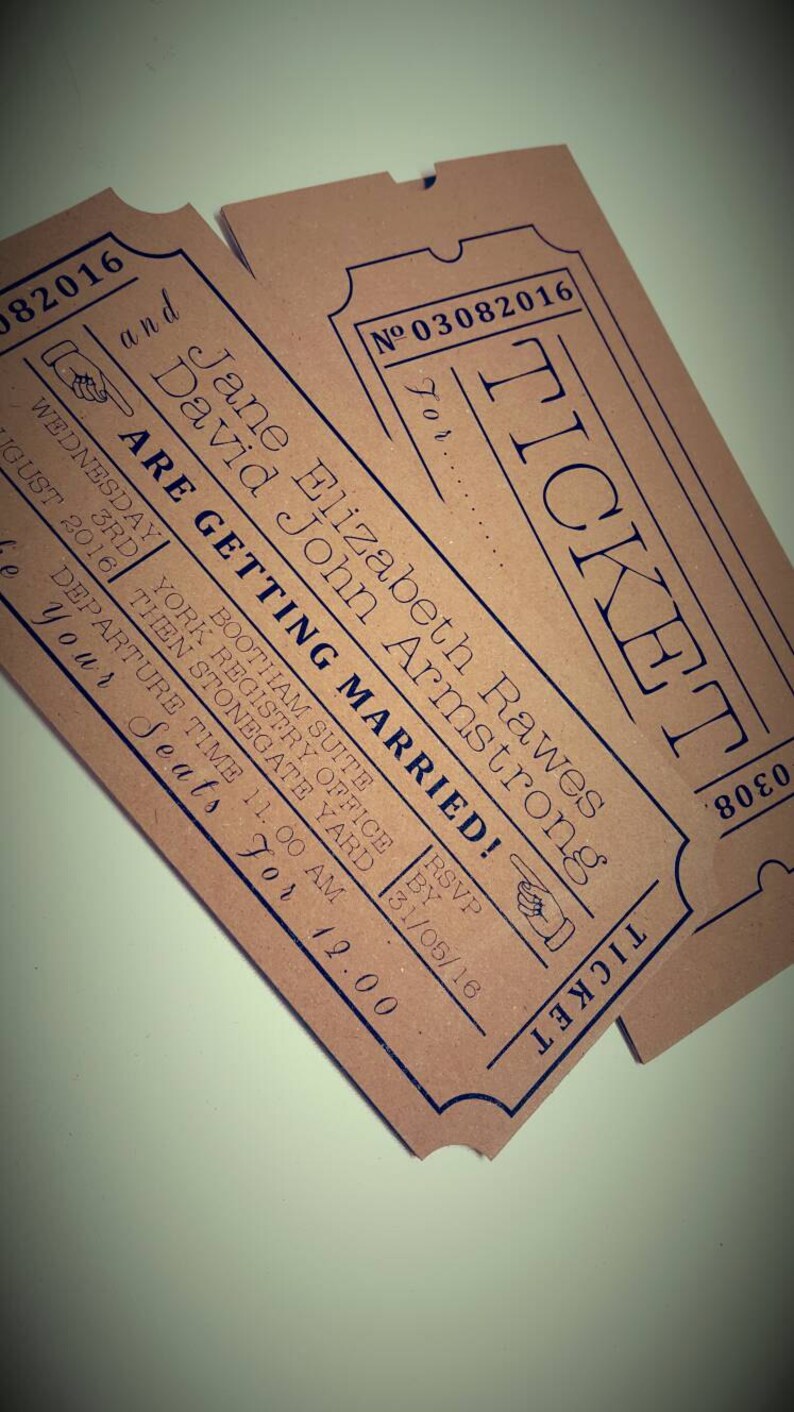 082016
and
Jane Elizabeth Rawes
David John Armstrong
ARE GETTING MARRIED!
WEDNESDAY
3RD
UGUST 2016
BOOTHAM SUITE
YORK REGISTRY OFFICE
THEN STONEGATE YARD
RSVP
BY
31/05/16
DEPARTURE TIME 11.00 AM
ke Your Seats For 12.00
TICKET
Nº 03082016
For........
TICKET
0308